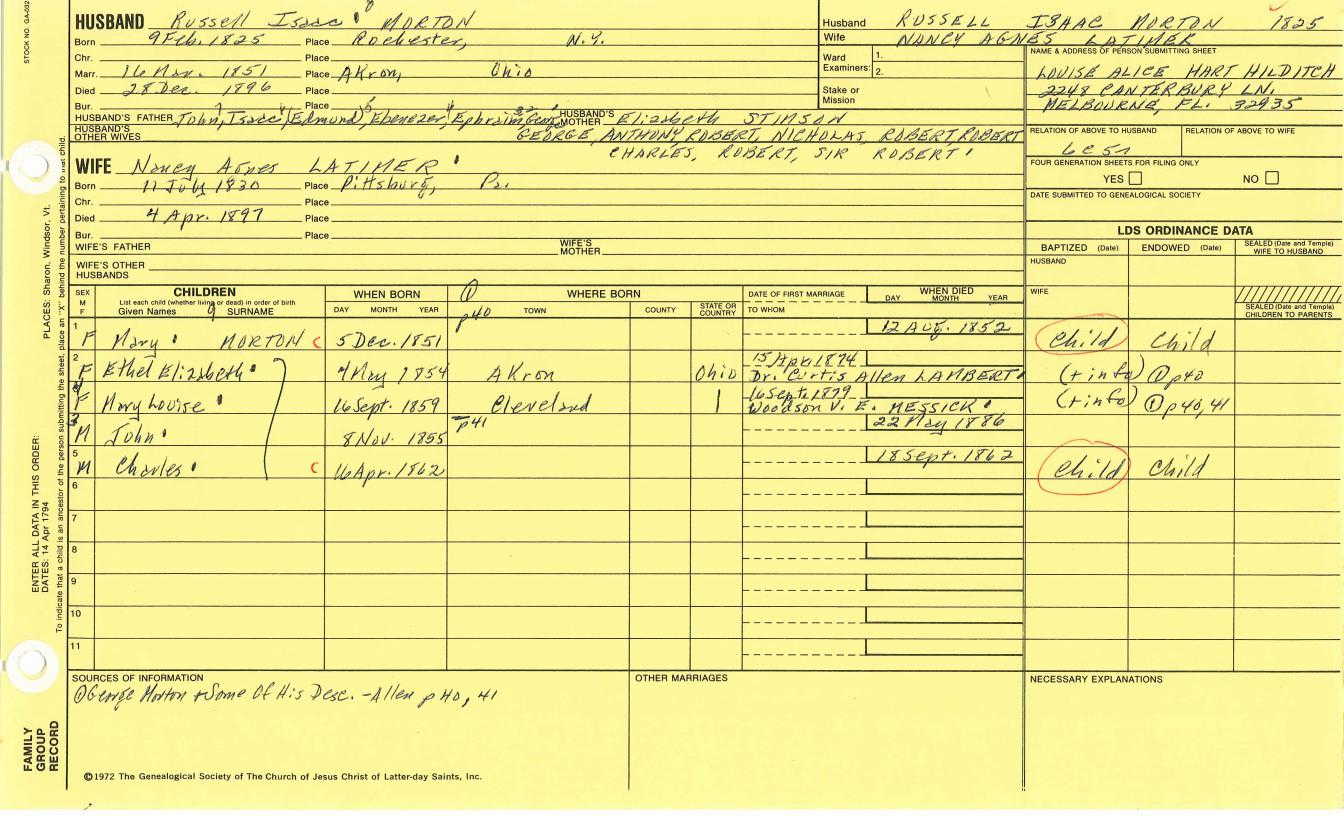 STOCK NO. GA-032
HUSBAND Russell Isaac MORTON
Born 9 Feb. 1825 Place Rochester, N.Y.
Chr. Place
Marr. 16 Mar. 1851 Place Akron, Ohio
Died 28 Dec. 1896 Place
Bur. Place
HUSBAND'S FATHER John, Isaac, Edmund, Ebenezer, Ephraim, George HUSBAND'S MOTHER Elizabeth STIMSON
HUSBAND'S OTHER WIVES GEORGE, ANTHONY, ROBERT, NICHOLAS, ROBERT, ROBERT
CHARLES, ROBERT, SIR ROBERT
Husband RUSSELL ISAAC MORTON 1825
Wife NANCY AGNES LATIMER
Ward 1.
Examiners: 2.
Stake or Mission
NAME & ADDRESS OF PERSON SUBMITTING SHEET
LOUISE ALICE HART HILDITCH
2248 CANTERBURY LN.
MELBOURNE, FL. 32935
RELATION OF ABOVE TO HUSBAND RELATION OF ABOVE TO WIFE
6c5r
FOUR GENERATION SHEETS FOR FILING ONLY
YES NO
DATE SUBMITTED TO GENEALOGICAL SOCIETY
WIFE Nancy Agnes LATIMER
Born 11 July 1830 Place Pittsburg, Pa.
Chr. Place
Died 4 Apr. 1897 Place
Bur. Place
WIFE'S FATHER WIFE'S MOTHER
WIFE'S OTHER HUSBANDS
LDS ORDINANCE DATA
BAPTIZED (Date) ENDOWED (Date) SEALED (Date and Temple) WIFE TO HUSBAND
HUSBAND
WIFE
SEALED (Date and Temple) CHILDREN TO PARENTS
SEX M F CHILDREN List each child (whether living or dead) in order of birth Given Names SURNAME WHEN BORN DAY MONTH YEAR WHERE BORN TOWN COUNTY STATE OR COUNTRY DATE OF FIRST MARRIAGE TO WHOM WHEN DIED DAY MONTH YEAR
① p40
1 F Mary MORTON C 5 Dec. 1851 12 Aug. 1852 Child Child
2 F Ethel Elizabeth 4 May 1854 Akron Ohio 15 Apr. 1874 Dr. Curtis Allen LAMBERT (+ info) ① p40
4 F Mary Louise 16 Sept. 1859 Cleveland 16 Sept. 1879 Woodson V. E. MESSICK (+ info) ① p40, 41
p41
3 M John 8 Nov. 1855 22 May 1886
5 M Charles C 16 Apr. 1862 18 Sept. 1862 Child Child
6
7
8
9
10
11
SOURCES OF INFORMATION
① George Morton & Some Of His Desc. - Allen p 40, 41
OTHER MARRIAGES
NECESSARY EXPLANATIONS
©1972 The Genealogical Society of The Church of Jesus Christ of Latter-day Saints, Inc.
FAMILY GROUP RECORD
ENTER ALL DATA IN THIS ORDER:
DATES: 14 Apr 1794
PLACES: Sharon, Windsor, Vt.
To indicate that a child is an ancestor of the person submitting the sheet, place an "X" behind the number pertaining to that child.